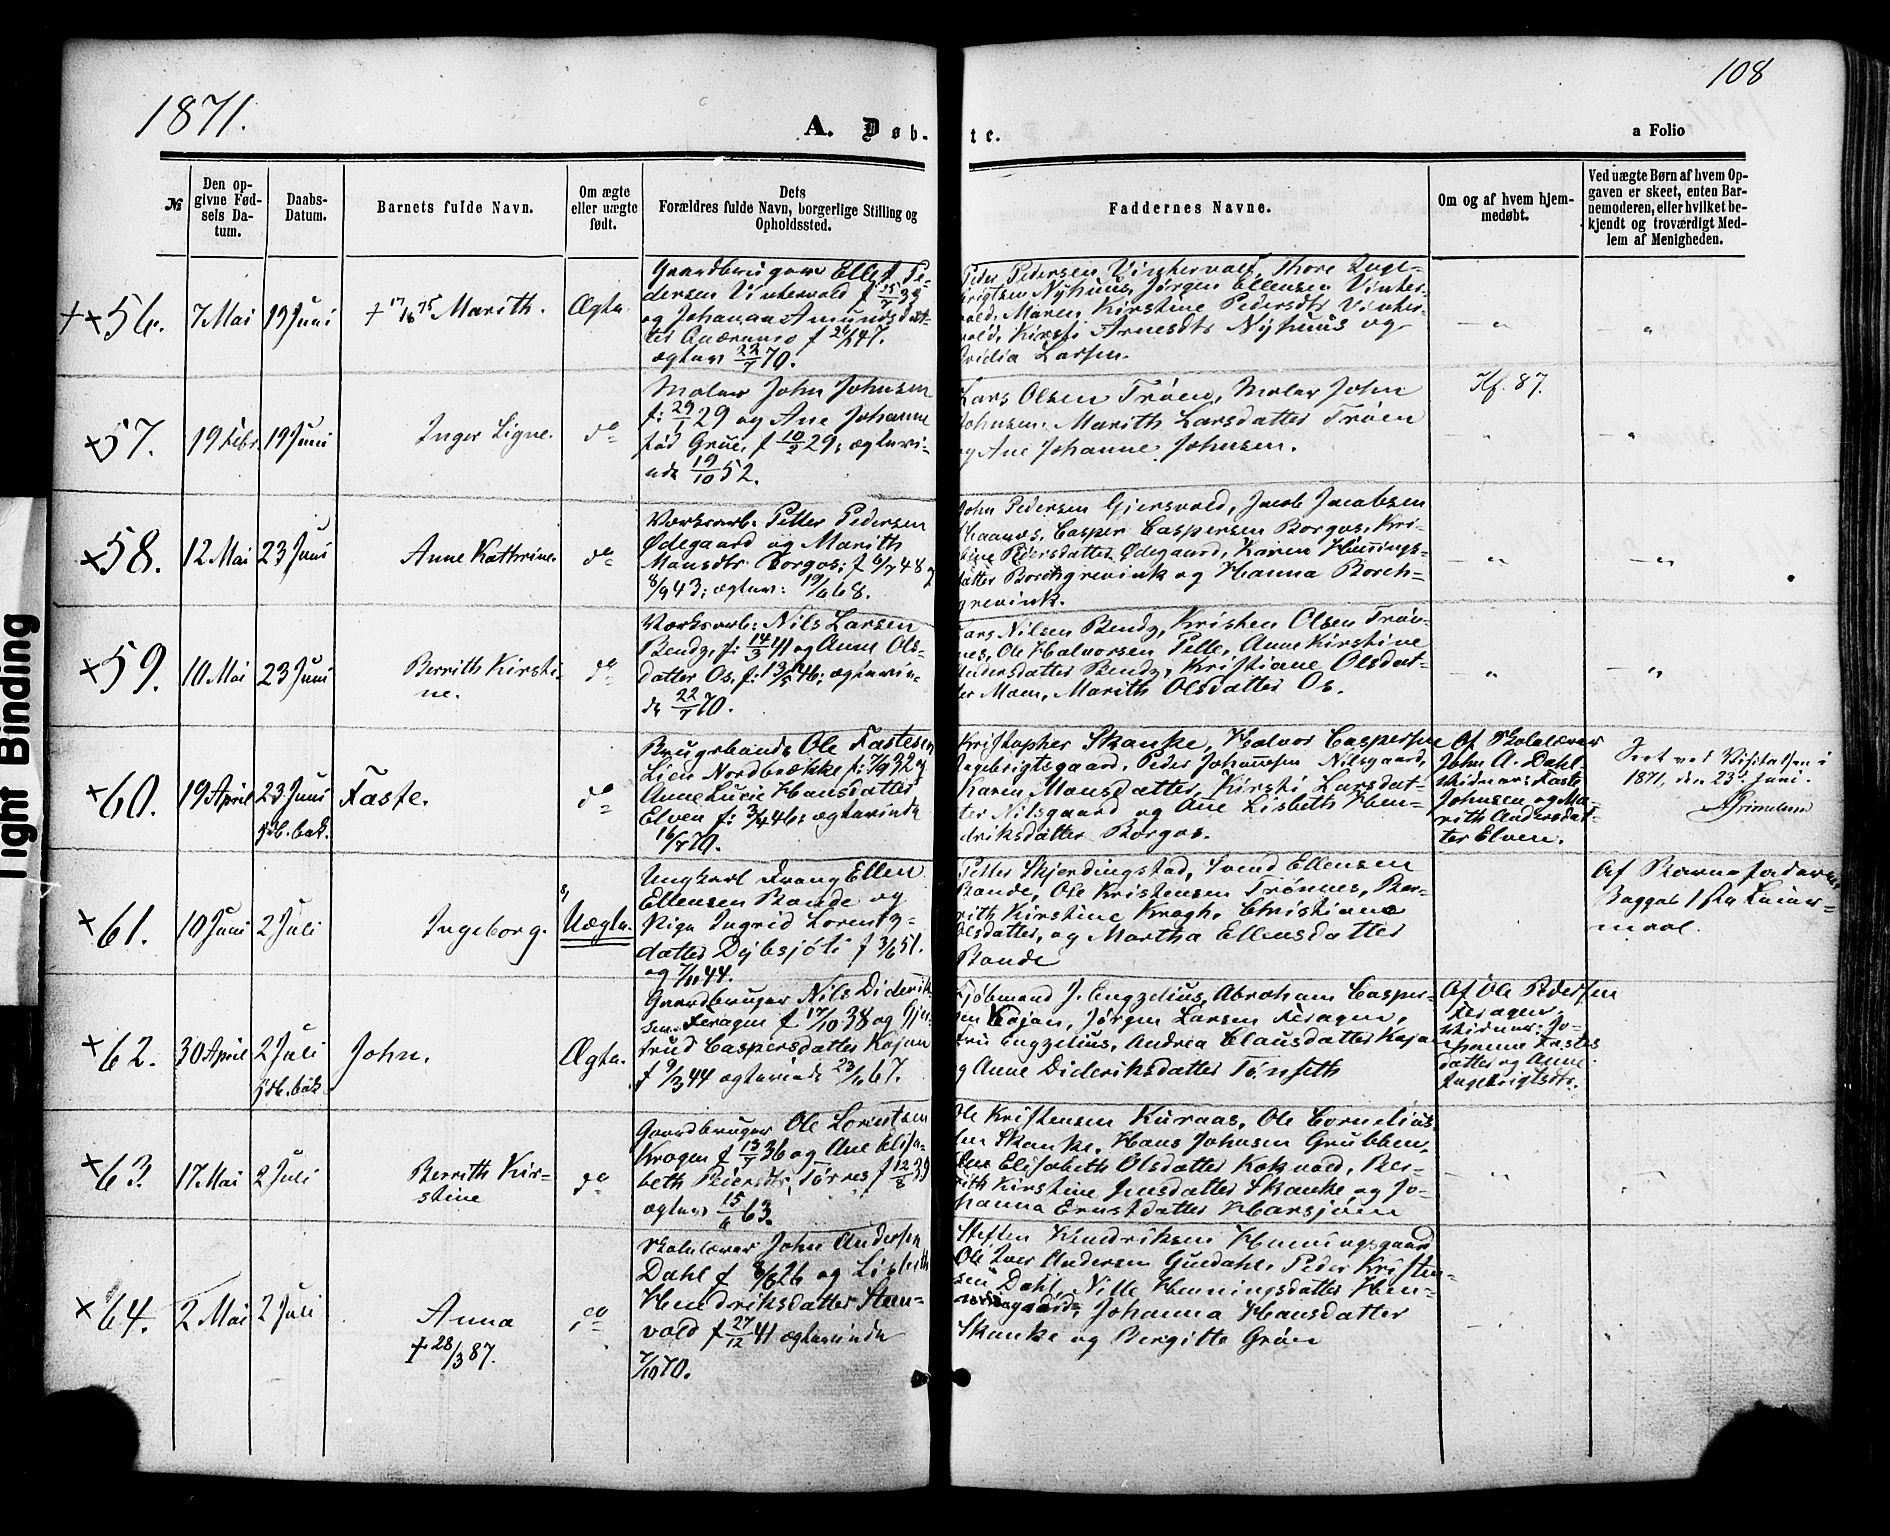 108
1871.
A. Døb-
te.
a Folio
№
Den op-
givne Fød-
sels Da-
tum.
Daabs-
Datum.
Barnets fulde Navn.
Om ægte
eller uægte
født.
Dets
Forældres fulde Navn, borgerlige Stilling og
Opholdssted.
Faddernes Navne.
Om og af hvem hjem-
medøbt.
Ved uægte Børn af hvem Op-
gaven er skeet, enten Bar-
nemoderen, eller hvilket be-
kjendt og troværdigt Med-
lem af Menigheden.
56.
7 Mai
19 Juni
Marith.
Ægte.
Gaardbruger Ellef Pe-
dersen Vintervold f 25/7 39
og Johanna Amundsdat-
ter f 26/2 47.
ægtev: 22/7 70.
Peder Pedersen Vintervold, Thore Inge-
brigtsen Nyhuus, Jørgen Ellensen Vinter-
vold, Maren Kirstine Pedersdtr Vinter-
vold, Kirsti Arnesdtr Nyhuus og
Larsen.
57.
19 Febr
19 Juni
Inger Ligne.
do
Maler John Johnsen
f: 29/1 29 og Ane Johanne
fød Grue, f 10/2 29; ægtevi-
ede 19/10 52.
Lars Olsen Trøen, Maler John
Johnsen, Marith Larsdatter Trøen
og Ane Johanne Johnsen.
Kf. 87.
58.
12 Mai
23 Juni
Anne Kathrine.
do
Værksarb. Petter Pedersen
Ødegaard og Marith
Monsdtr Borgos; f 6/7 48 og
8/9 43; ægtev: 19/6 68.
John Pedersen Gjersvold, Jacob Jacobsen
Haanes, Casper Caspersen Borgos, Kri-
stine Pedersdatter Ødegaard, Karen Hennings-
datter Borchgrevink og Hanna Borch-
grevink.
59.
10 Mai
23 Juni
Berrith Kirsti-
ne.
do
Værksarb: Nils Larsen
Bendz, f: 14/3 41 og Anne Ols-
datter Os, f: 13/5 46; ægtevie-
de 22/7 70.
Lars Nilsen Bendz, Kristen Olsen Trøn-
nes, Ole Halvorsen Pelle, Anne Kirstine
Andersdatter Bendz, Kristiane Olsdat-
ter Moen, Marith Olsdatter Os.
60.
19 April
23 Juni
hjb. bek.
Faste.
do
Brugsbonde Ole Fastesen
Lien Nordbrække f: 7/9 32 og
Anne Lucie Hansdatter
Elven f: 3/4 46; ægteviede
16/7 70.
Kristopher Skanke, Halvor Caspersen
Ingebrigtsgaard, Peder Johannesen Nilsgaard,
Karen Monsdatter, Kirsti Larsdat-
ter Nilsgaard og Ane Lisbeth Hen-
driksdatter Borgos.
Af Skolelærer
John A. Dahl.
Vidner: Faste
Johnsen og Ma-
rith Andersdat-
ter Elven.
Seet ved Visitatsen i
1871, den 23d Juni.
61.
10 Juni
2 Juli
Ingeborg.
Uægte.
Ungkarl Frants Ellen
Ellensen Bonde og
Pige Ingrid Lorentz-
datter Dybsjøli f 3/6 51.
og 7/11 44.
Petter Skjerdingstad, Svend Ellensen
Bonde, Ole Kristensen Trønnes, Ber-
rith Kirstine Kragh, Christiane
Olsdatter, og Martha Ellensdatter
Bonde
Af Barnefaderen.
Begges 1ste Leier-
maal.
62.
30 April
2 Juli
hjb. bek.
John.
Ægte.
Gaardbruger Nils Diderik-
sen Feragen f 17/10 38 og Gjer-
trud Caspersdatter Kojan
f 9/3 44 ægteviede 23/11 67.
Kjøbmand J. Engzelius, Abraham Casper-
sen Kojan, Jørgen Larsen Feragen,
Fru Engzelius, Andrea Clausdatter Kojan
og Anne Dideriksdatter Tønseth
Af Ole Pedersen
Feragen.
Vidner: Jo-
hanne Fastes
datter og Anne
Ingebrigtsdtr.
63.
17 Mai
2 Juli
Berrith Kir-
stine
do
Gaardbruger Ole Lorentsen
Kragen f 13/7 36 og Ane Elisa-
beth Peiersdtr. Tørres f 12/8 39
ægtev: 15/6 63.
Ole Kristensen Kuraas, Ole Cornelius-
sen Skanke, Hans Johnsen Grubben,
Ane Elisabeth Olsdatter Kokvold, Ber-
rith Kirstine Jensdatter Skanke, og Jo-
hanna Ernstdatter Harsjøen
64.
2 Mai
2 Juli
Anna
† 28/3 87.
do
Skolelærer John Andersen
Dahl f 8/8 26 og Lisbeth
Hendriksdatter Steen-
vold f 27/12 41 ægteviede
7/10 70.
Steffen Hendriksen Henningsgaard
Ole Iver Andersen Guldahl, Peder Kristen-
sen Dahl, Nille Henningsdatter Hen-
ningsgaard, Johanna Hansdatter
Skanke og Bergitte Grøn
Tight Binding